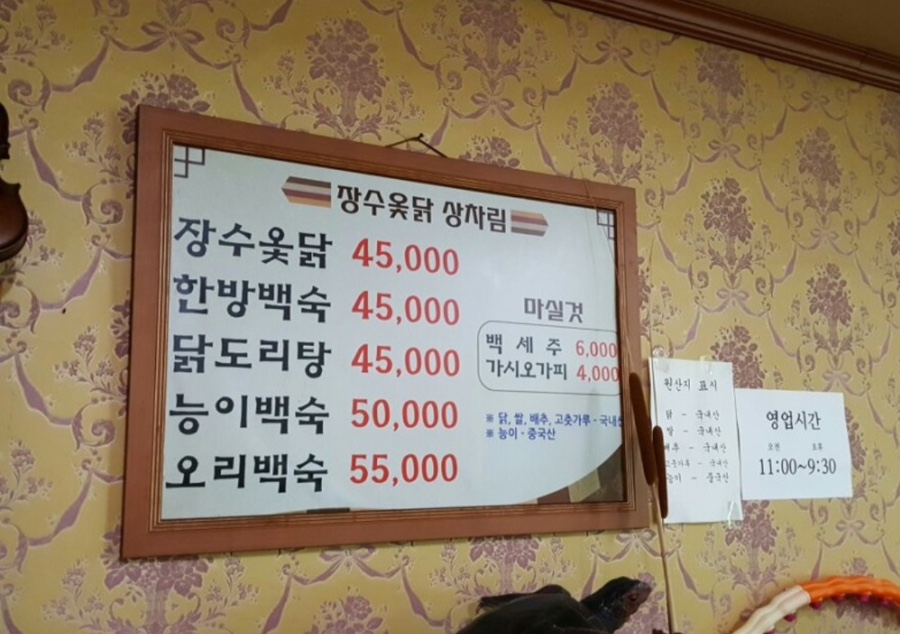 장수옻닭 상차림
장수옻닭 45,000
한방백숙 45,000
닭도리탕 45,000
능이백숙 50,000
오리백숙 55,000
마실것
백세주 6,000
가시오가피 4,000
※ 닭, 쌀, 배추, 고춧가루 - 국내산
※ 능이 - 중국산
원산지 표시
닭 - 국내산
쌀 - 국내산
배추 - 국내산
고춧가루 - 국내산
능이 - 중국산
영업시간
오전 오후
11:00~9:30